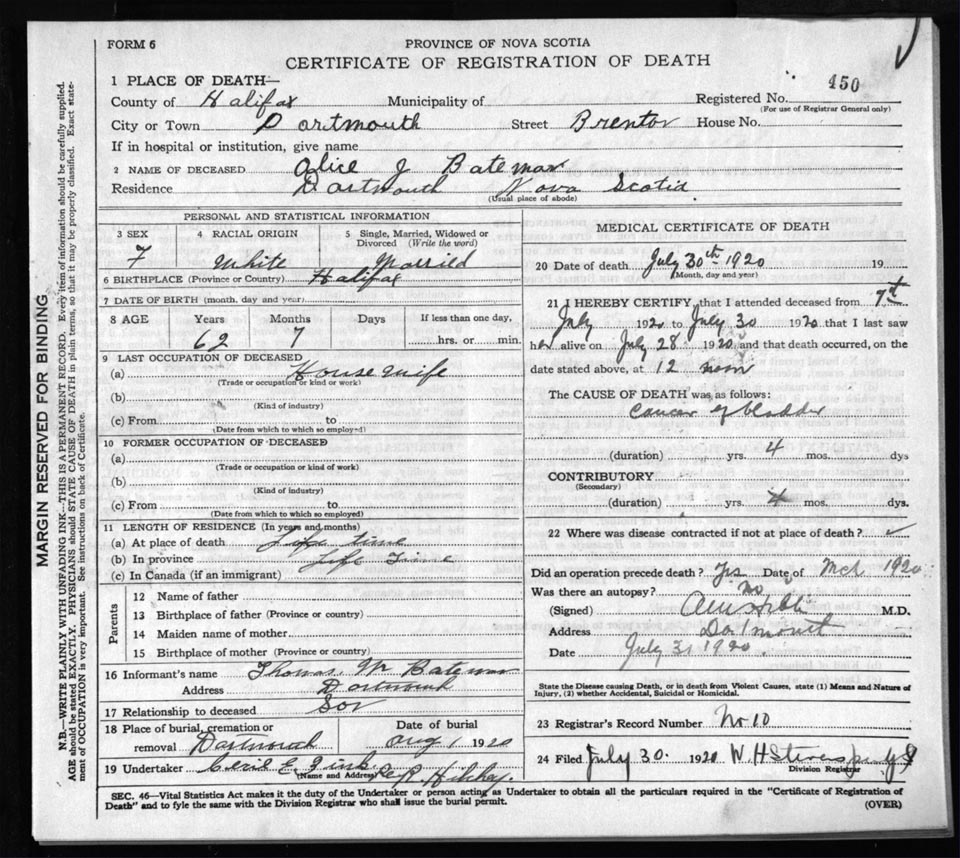 FORM 6
PROVINCE OF NOVA SCOTIA
CERTIFICATE OF REGISTRATION OF DEATH
1 PLACE OF DEATH—
450
County of Halifax Municipality of Registered No.
(For use of Registrar General only)
City or Town Dartmouth Street Brenton House No.
If in hospital or institution, give name
2 NAME OF DECEASED Alice J Bateman
Residence Dartmouth Nova Scotia
(Usual place of abode)
PERSONAL AND STATISTICAL INFORMATION
3 SEX 4 RACIAL ORIGIN 5 Single, Married, Widowed or Divorced (Write the word)
F White Married
6 BIRTHPLACE (Province or Country) Halifax
7 DATE OF BIRTH (month, day and year)
8 AGE Years Months Days If less than one day,
62 7 hrs. or min.
9 LAST OCCUPATION OF DECEASED
(a) House wife
(Trade or occupation or kind or work)
(b)
(Kind of industry)
(c) From to
(Date from which to which so employed)
10 FORMER OCCUPATION OF DECEASED
(a)
(Trade or occupation or kind of work)
(b)
(Kind of industry)
(c) From to
(Date from which to which so employed)
11 LENGTH OF RESIDENCE (In years and months)
(a) At place of death Life time
(b) In province Life Time
(c) In Canada (if an immigrant)
Parents
12 Name of father
13 Birthplace of father (Province or country)
14 Maiden name of mother
15 Birthplace of mother (Province or country)
16 Informant's name Thomas W Bateman
Address Dartmouth
17 Relationship to deceased Son
18 Place of burial, cremation or Date of burial
removal Dartmouth Aug 1 1920
19 Undertaker
(Name and Address)
MEDICAL CERTIFICATE OF DEATH
20 Date of death July 30th 1920 19
(Month, day and year)
21 I HEREBY CERTIFY, that I attended deceased from 7th
July 1920 to July 30 1920 that I last saw
her alive on July 28 1920 and that death occurred, on the
date stated above, at 12 noon
The CAUSE OF DEATH was as follows:
Cancer of bladder
(duration) yrs. 4 mos. dys
CONTRIBUTORY
(Secondary)
(duration) yrs. mos. dys.
22 Where was disease contracted if not at place of death?
Did an operation precede death? Yes Date of Mch 1920
Was there an autopsy? No
(Signed) M.D.
Address Dartmouth
Date July 31 1920
State the Disease causing Death, or in death from Violent Causes, state (1) Means and Nature of
Injury, (2) whether Accidental, Suicidal or Homicidal.
23 Registrar's Record Number No 10
24 Filed July 30 1920 W H
Division Registrar
SEC. 46—Vital Statistics Act makes it the duty of the Undertaker or person acting as Undertaker to obtain all the particulars required in the "Certificate of Registration of
Death" and to fyle the same with the Division Registrar who shall issue the burial permit.
(OVER)
MARGIN RESERVED FOR BINDING
N.B.—WRITE PLAINLY WITH UNFADING INK—THIS IS A PERMANENT RECORD. Every item of information should be carefully supplied.
AGE should be stated EXACTLY. PHYSICIANS should STATE CAUSE OF DEATH in plain terms, so that it may be properly classified. Exact state-
ment of OCCUPATION is very important. See instructions on back of Certificate.